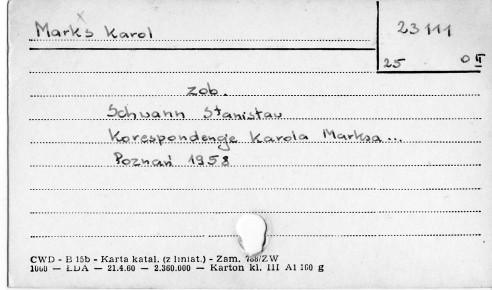 Marks Karol
23111
25 OII
zob.
Schwann Stanisław
Korespondencje Karola Marksa...
Poznań 1958
CWD - B 15b - Karta katal. (z liniat.) - Zam. 788/ZW
1060 — ŁDA — 21.4.60 — 2.360.000 — Karton kl. III A1 160 g